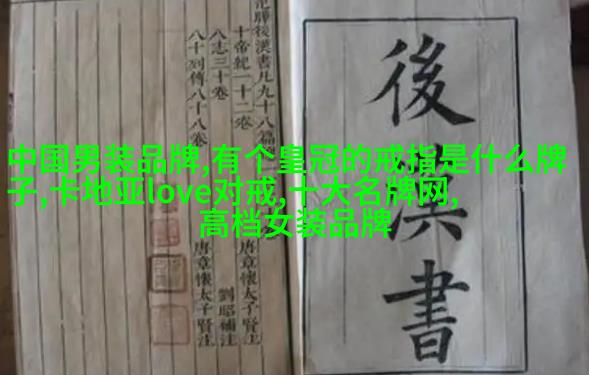 中国男装品牌,有个皇冠的戒指是什么牌
子,卡地亚love对戒,十大名牌网,
高档女装品牌
後漢書
後漢書凡九十八篇
十帝紀一十二卷
唐章懷太子賢注
八志三十卷
劉昭補注
八十列傳八十八卷
唐章懷太子賢注